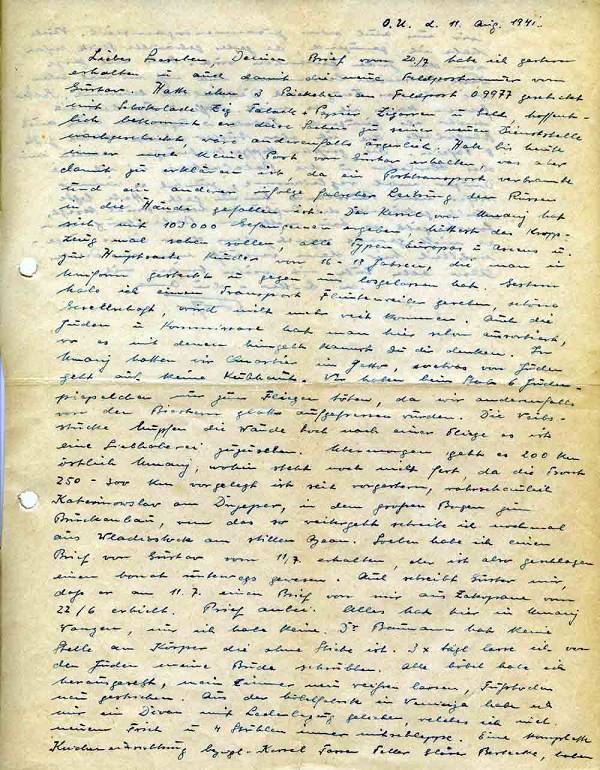 O.U. d. 11. Aug. 1941.
Liebes Lieschen Deinen Brief vom 20/7 habe ich gestern
erhalten u. auch damit die neue Feldpostnummer von
Gustav. Hatte ihm 3 Päckchen an Feldpost 09977 geschickt
mit Schokolade Zig Tabak + Papier Zigarren u. Geld, hoffent-
lich bekommt er diese Sachen zu seiner neuen Dienststelle
nachgeschickt, wäre anderenfalls ärgerlich. Habe bis heute
immer noch keine Post von Gustav erhalten, was aber
damit zu erklären ist, da ein Posttransport verbrannte
und ein anderer infolge falscher Leitung den Russen
in die Hände gefallen ist. Der Kessel von Umanj hat
sich mit 103000 Gefangenen ergeben, hättest das
mal sehen sollen, alle Typen Europas u. Asiens u.
zur Hauptsache Kinder von 16 - Jahren, die man in
Uniform gesteckt u. gegen uns losgelassen hat. Gestern
habe ich einen Transport Flintenweiber gesehen, schöne
Gesellschaft, wird nicht mehr weit kommen. Auch die
Juden u. Kommissare hat man hier schon aussortiert,
wo es mit denen hingeht kannst Du dir denken. In
Umanj hatten wir Quartier im Getto, sowas von Juden
geht auf keine Kuhhaut. Wir haben beim Stabe 6 Juden-
nur zum Fliegen töten, da wir anderenfalls
von den Biestern glatt aufgefressen würden. Die Weibs-
stücke hupfen die Wände hoch nach einer Fliege es ist
eine Liebhaberei zuzusehen. Übermorgen geht es 200 Km
östlich Umanj, wohin steht noch nicht fest, da die Front
250 - 300 Km vorgelegt ist seit vorgestern, wahrscheinlich
Katerinoslav am Dnjeper, in dem großen Bogen zum
Brückenbau, wenn das so weitergeht schreibe ich nochmal
aus Wladiwostock am stillen Ozean. Soeben habe ich einen
Brief von Gustav vom 11/7. erhalten, der ist also geschlagen
einen Monat unterwegs gewesen. Auch schreibt Gustav mir,
daß er am 11.7. einen Brief von mir aus Zakopane vom
22/6 erhielt. Brief anbei. Alles hat hier in Umanj
Wanzen, nur ich habe keine. Dr Baumann hat keine
Stelle am Körper die ohne Stiche ist. 3 x tägl lasse ich von
den Juden meine Bude schrubben. Alle Möbel habe ich
herausgesetzt, mein Zimmer neu weißen lassen, Fußboden
neu gestrichen. Aus der Möbelfabrik in habe ich
mir ein Divan mit Lederbezug geliehen, welches ich mit
neuem Tisch u. 4 Stühlen immer mitschleppe. Eine komplette
Kücheneinrichtung bezgl. Kessel Tassen Teller Gläser Bestecke, haben